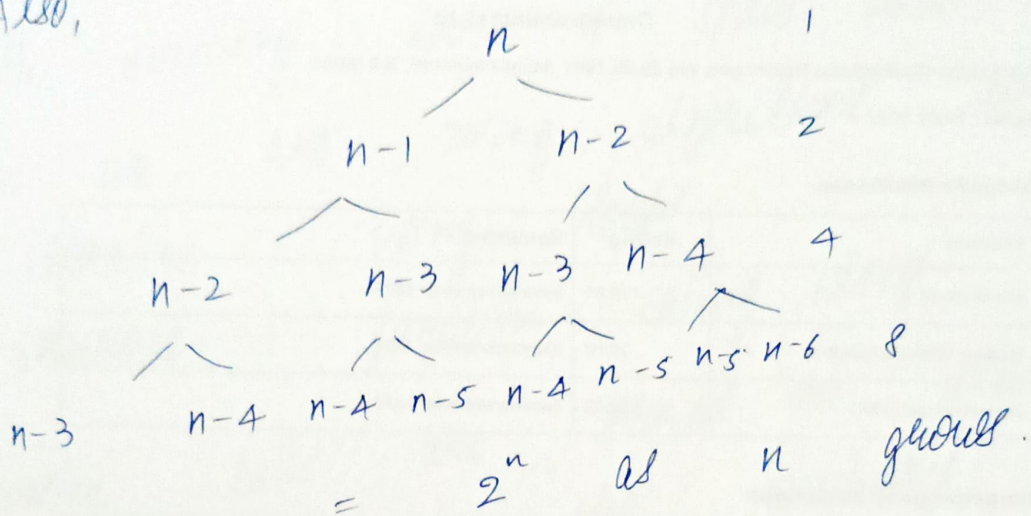 Also,
n 1
n-1 n-2 2
n-2 n-3 n-3 n-4 4
n-3 n-4 n-4 n-5 n-4 n-5 n-5 n-6 8
= 2^n as n grows.